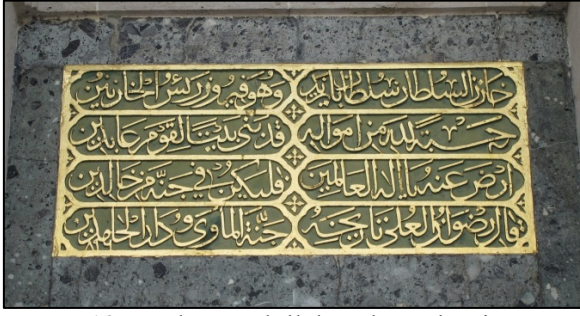 خازن السلطان سلطان بايزيد وهو فيروز رئيس الخازنين
حسبة لله من امواله قد بنى بيتا لقوم عابدين
ارض عنه يا اله العالمين فليكن في جنة من خالدين
قال رضوان العلى تاريخه جنة المأوى ودار